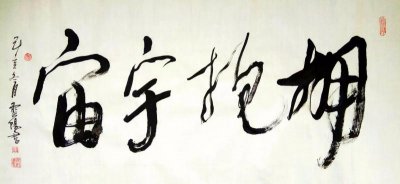 拥抱宇宙